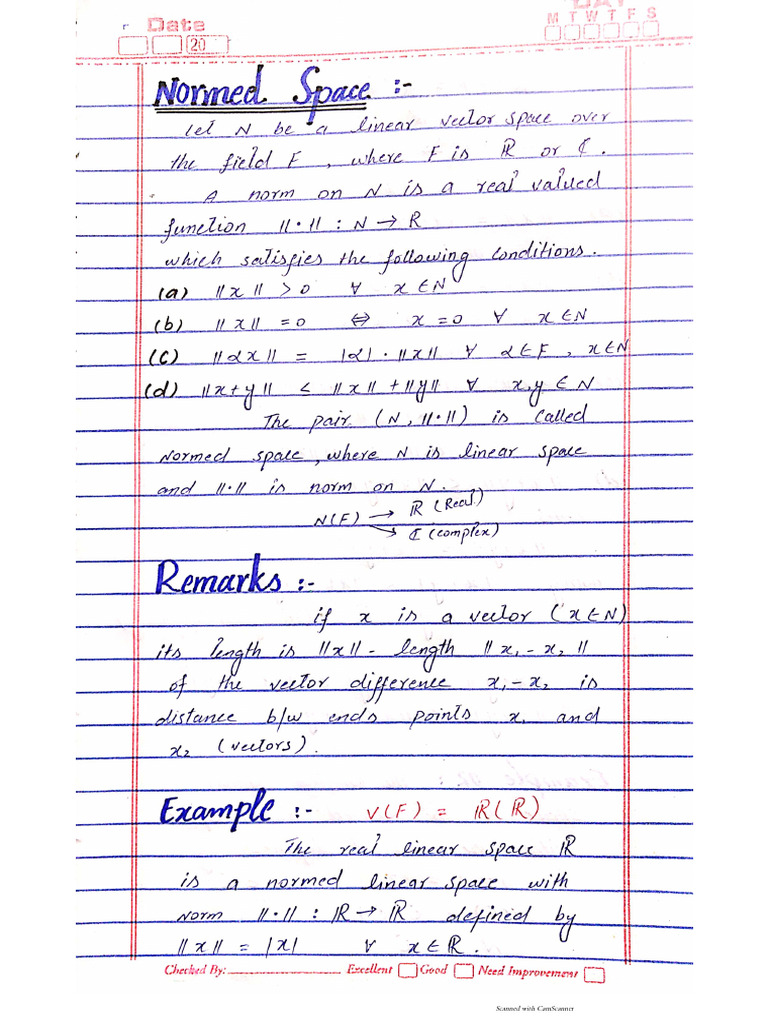 Date
DAY
M T W T F S
20
Normed Space :-
Let N be a linear vector space over
the field F , where F is ℝ or ℂ.
A norm on N is a real valued
function ||·|| : N → R
which satisfies the following conditions.
(a) ||x|| > 0 ∀ x ∈ N
(b) ||x|| = 0 ⇔ x = 0 ∀ x ∈ N
(c) ||αx|| = |α| · ||x|| ∀ α ∈ F , x ∈ N
(d) ||x+y|| ≤ ||x|| + ||y|| ∀ x,y ∈ N
The pair (N, ||·||) is called
Normed space , where N is linear space
and ||·|| is norm on N.
N(F) → ℝ (Real)
→ ℂ (complex)
Remarks :-
if x is a vector (x ∈ N)
its length is ||x|| - length ||x₁ - x₂||
of the vector difference x₁ - x₂ is
distance b/w ends points x₁ and
x₂ (vectors).
Example :- V(F) = ℝ(ℝ)
The real linear space ℝ
is a normed linear space with
Norm ||·|| : ℝ → ℝ defined by
||x|| = |x| ∀ x ∈ ℝ.
Checked By: Excellent Good Need Improvement
Scanned with CamScanner